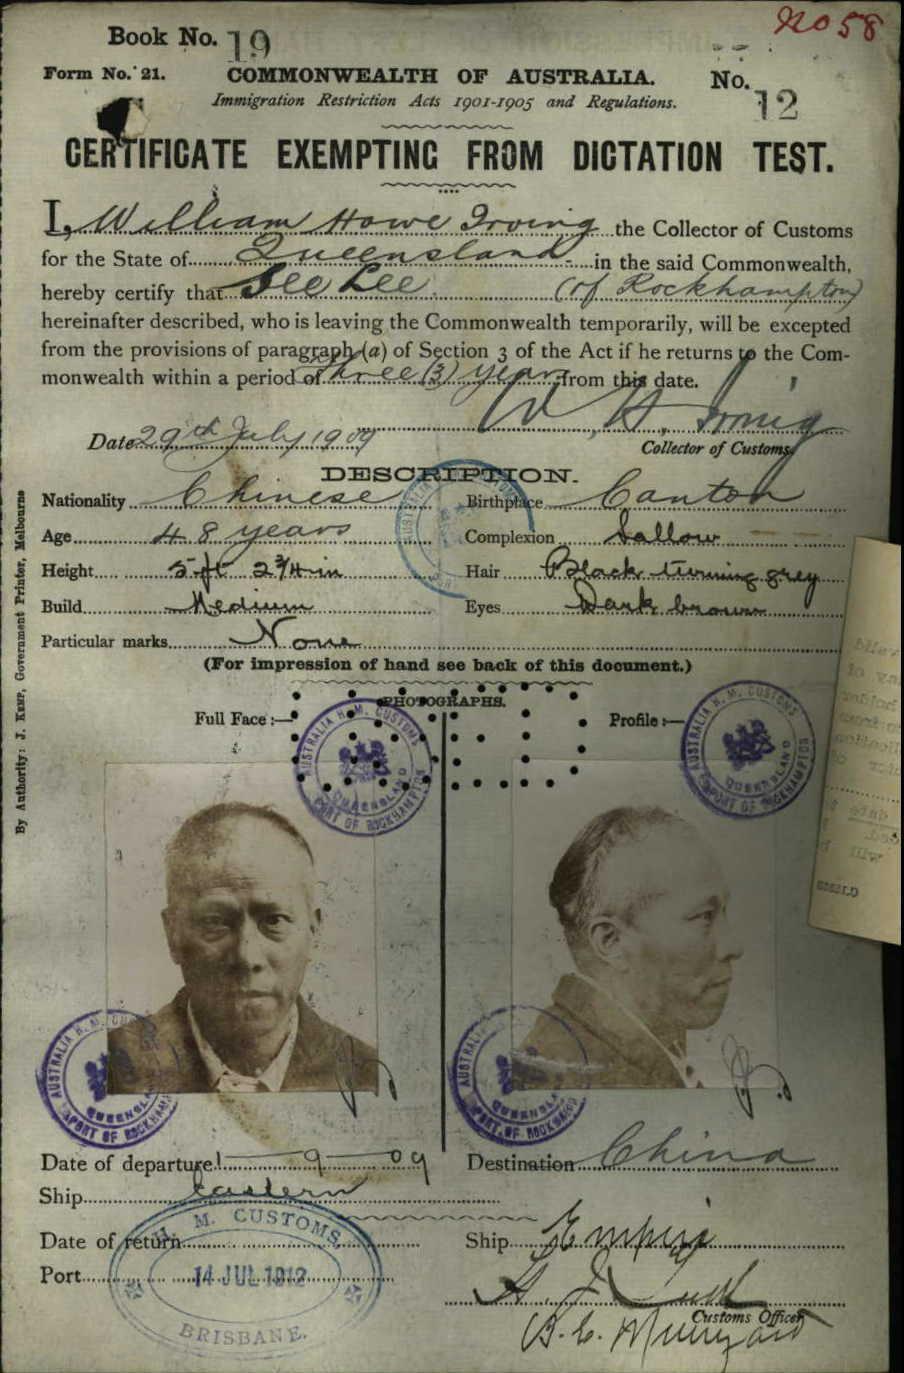 No 58
Book No. 19
Form No. 21. COMMONWEALTH OF AUSTRALIA. No. 12
Immigration Restriction Acts 1901-1905 and Regulations.
CERTIFICATE EXEMPTING FROM DICTATION TEST.
I, William Howe Irving the Collector of Customs
for the State of Queensland in the said Commonwealth,
hereby certify that Gee Lee (of Rockhampton)
hereinafter described, who is leaving the Commonwealth temporarily, will be excepted
from the provisions of paragraph (a) of Section 3 of the Act if he returns to the Com-
monwealth within a period of three (3) years from this date.
W. H. Irving
Date 29th July 1909 Collector of Customs
DESCRIPTION.
Nationality Chinese Birthplace Canton
Age 48 years Complexion Sallow
Height 5 ft 2 3/4 in Hair Black turning grey
Build Medium Eyes Dark brown
Particular marks None
(For impression of hand see back of this document.)
PHOTOGRAPHS.
Full Face:— Profile:—
AUSTRALIA H. M. CUSTOMS QUEENSLAND PORT OF ROCKHAMPTON
AUSTRALIA H. M. CUSTOMS QUEENSLAND PORT OF ROCKHAMPTON
AUSTRALIA H. M. CU QUEENSLA PORT OF ROCKHAM
AUSTRALIA QUEENSLA PORT OF ROCKHAMP
Date of departure 1—9—09 Destination China
Ship Eastern
Date of return Ship Empire
Port
H. M. CUSTOMS,
14 JUL 1912
BRISBANE.
Customs Officer
By Authority: J. Kemp, Government Printer, Melbourne